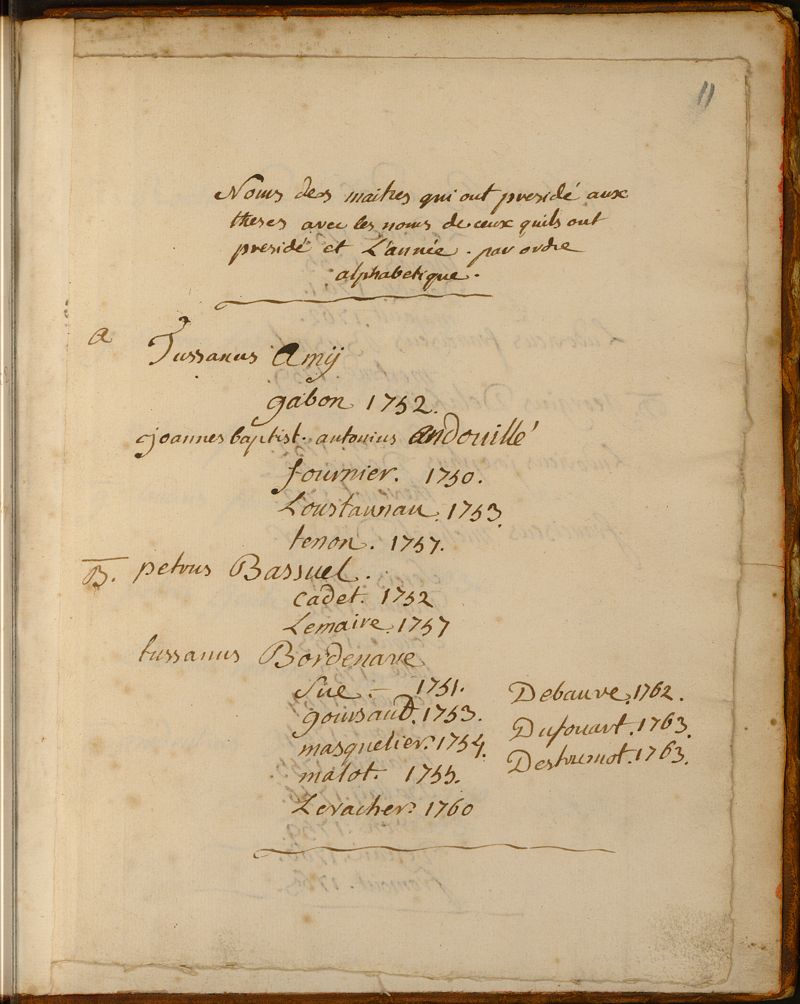 11
Noms des maitres qui ont presidé aux
theses avec les noms de ceux quils ont
presidé et L'année. par ordre
alphabetique.
a
Tussanus Amÿ
gabon 1752.
joannes baptist. antonius andouillé
fournier. 1750.
Loustaunau. 1753.
tenon. 1757.
B. petrus Bassuel.
cadet. 1752
Lemaire. 1757
tussanus Bordenave
Süe. - 1751.
goursaud. 1753.
masquelier. 1754.
malot. 1755.
Levacher. 1760
Debauve. 1762.
Dufouart. 1763.
Destremot. 1763.